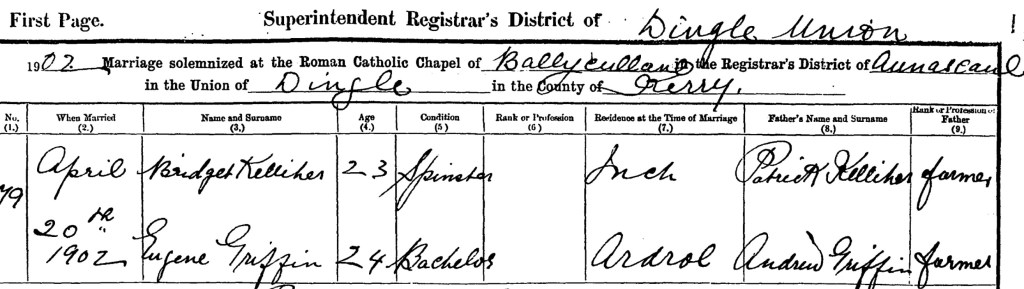 First Page. Superintendent Registrar's District of Dingle Union
1902 Marriage solemnized at the Roman Catholic Chapel of Ballycullane in the Registrar's District of Aunascaul
in the Union of Dingle in the County of Kerry.
No. (1.) When Married (2.) Name and Surname (3.) Age (4.) Condition (5) Rank or Profession (6) Residence at the Time of Marriage (7.) Father's Name and Surname (8.) Rank or Profession of Father (9.)
79 April Bridget Kelliher 23 Spinster Inch Patrick Kelliher farmer
20th
1902 Eugene Griffin 24 Bachelor Ardrol Andrew Griffin farmer